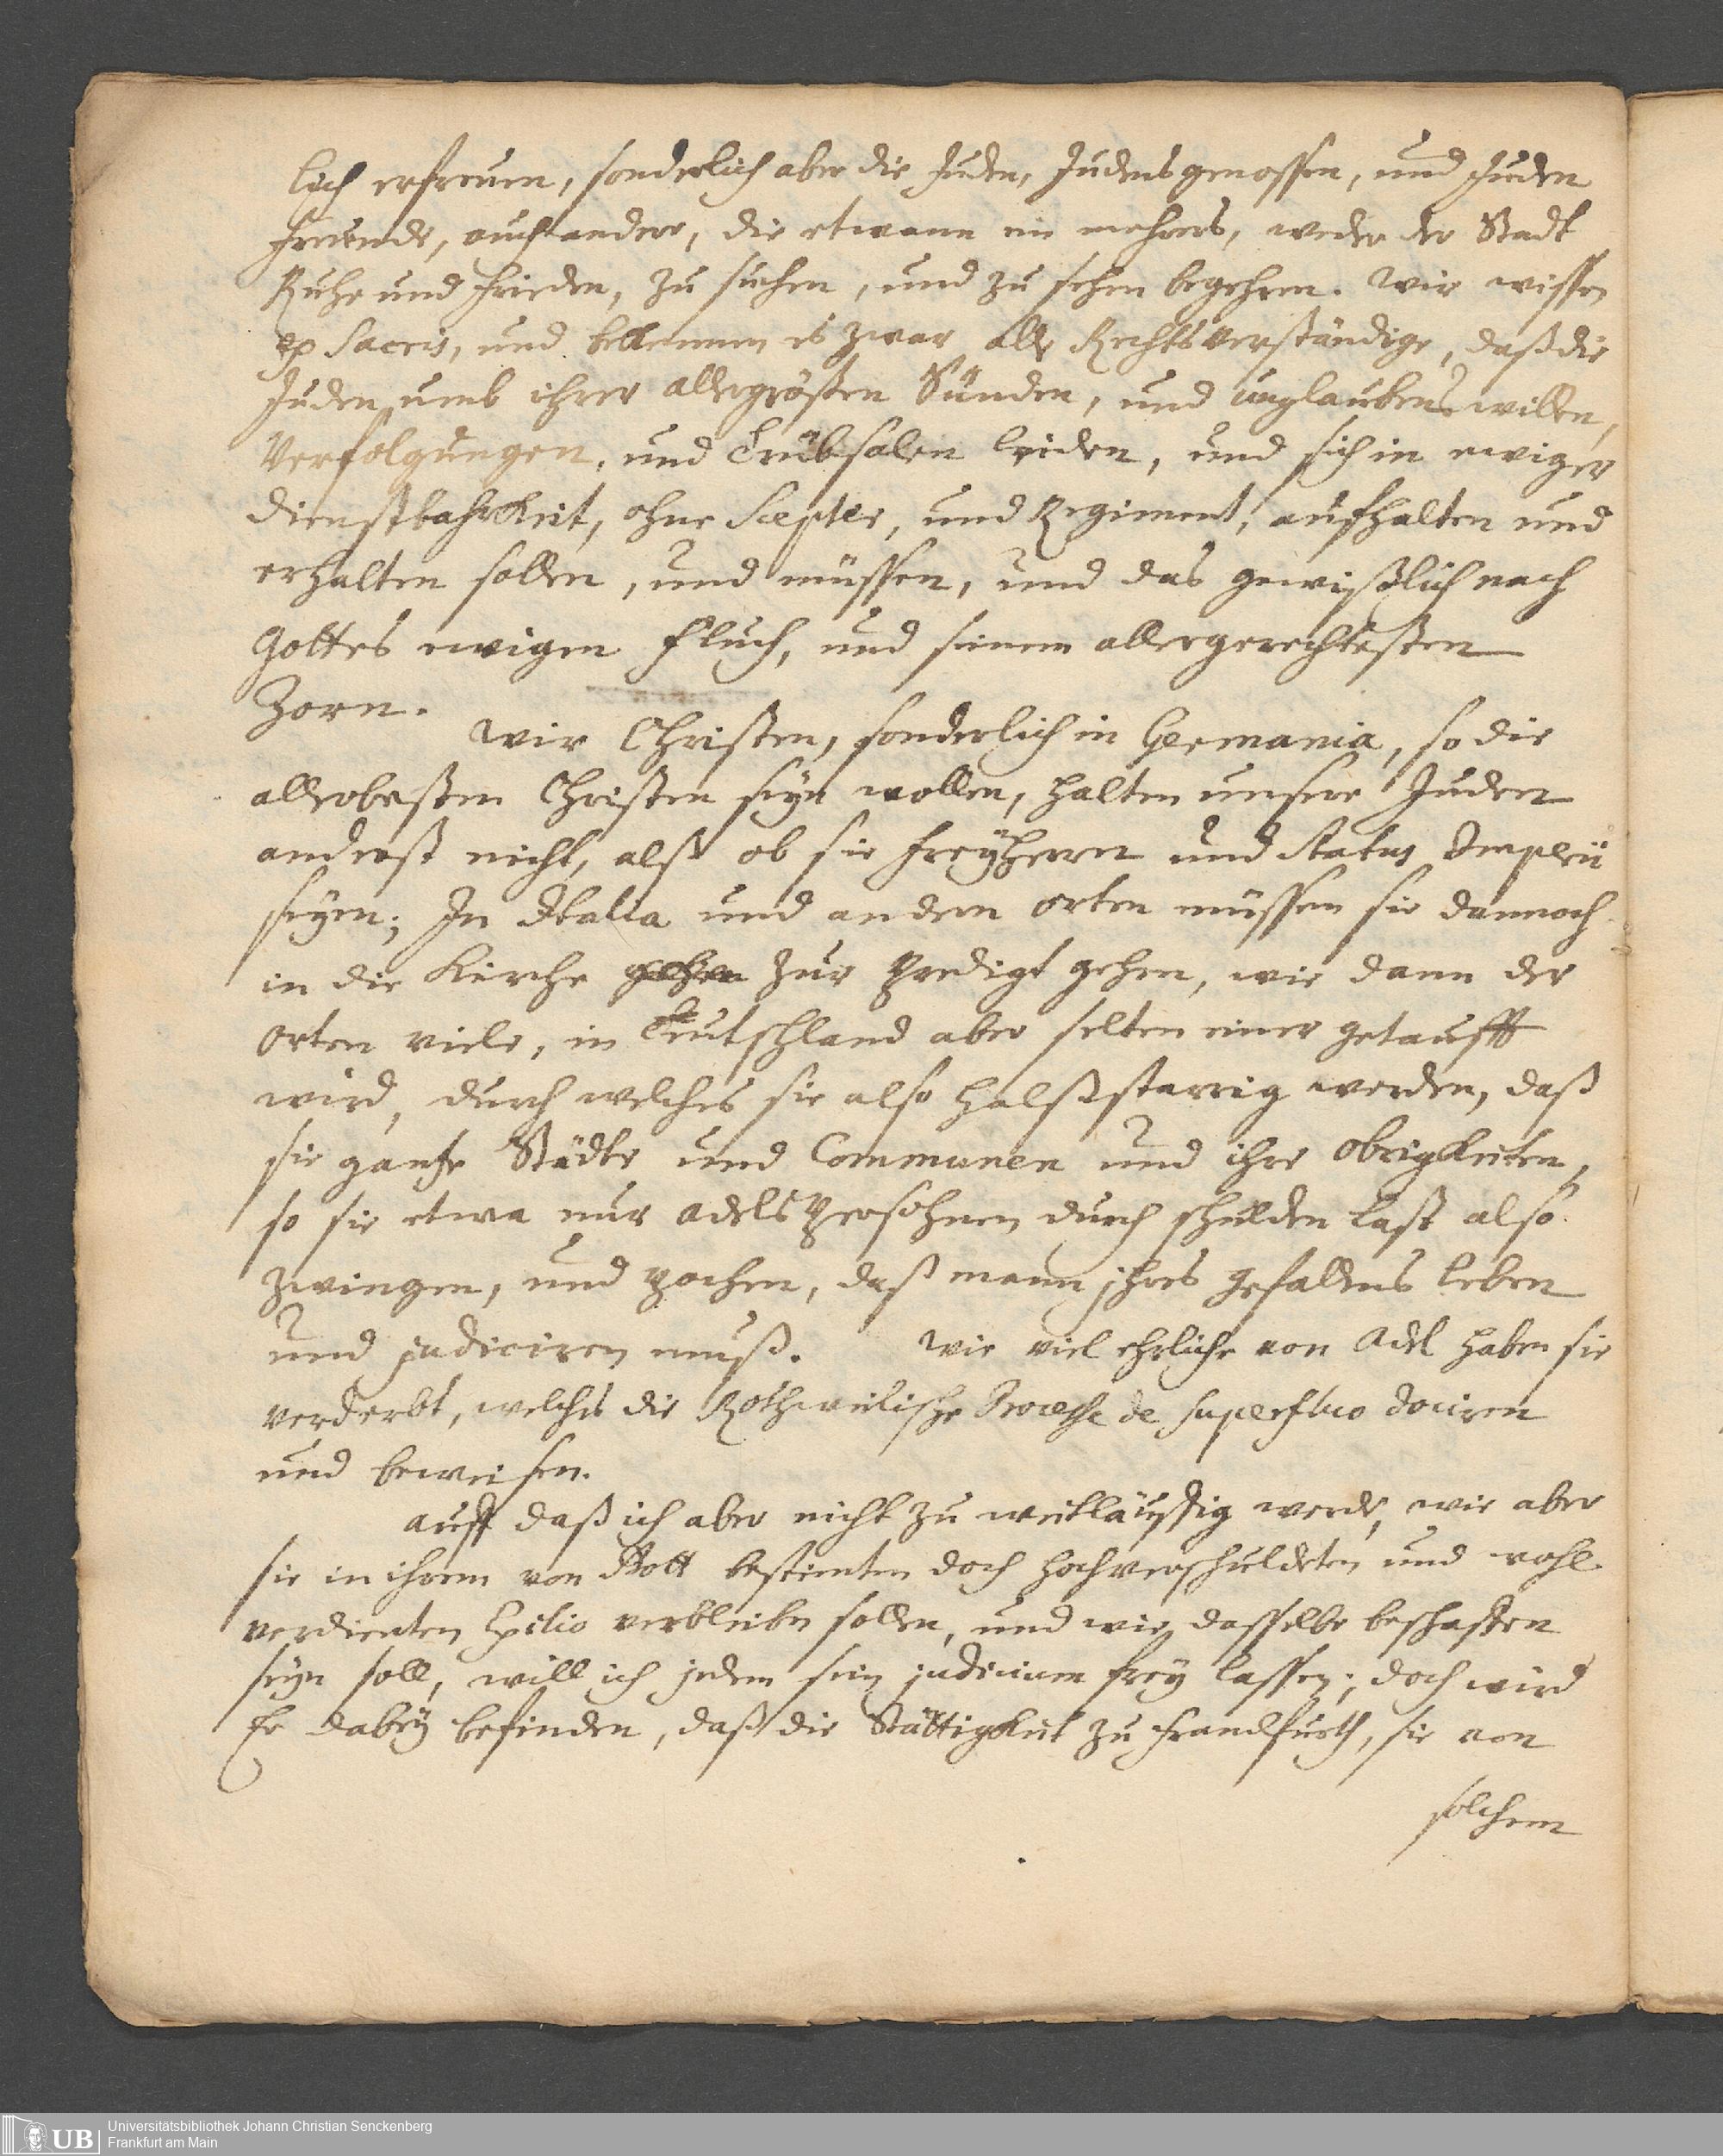 lich erfreuen, sonderlich aber die Juden, Judensgenossen, und Juden
freunde, auch andere, die etwann ein mehrers, weder der Stadt
Ruhe und frieden, zu suchen, und zu sehen begehren. Wir wissen
ex Sacris, und bekennen es zwar alle Rechtsverständige, daß die
Juden umb ihrer allergrösten Sünden, und unglaubens willen,
Verfolgungen, und Trübsalen leiden, und sich in ewiger
dienstbahrkeit, ohne Scepter, und Regiment, aufhalten und
erhalten sollen, und müssen, und das gewißlich nach
Gottes ewigen fluch, und seinem allergerechtesten
Zorn.
Wir Christen, sonderlich in Germania, so die
allerbesten Christen seyn wollen, halten unsere Juden
anderst nicht, alß ob sie freyherrn und Status Imperii
seyen; In Italia und andern orten müssen sie dannoch
in die Kirche gehen zur Predigt gehen, wie dann der
orten viele, in Teutschland aber selten einer getaufft
wird, durch welches sie also halßstarrig werden, daß
sie gantze Städte und Communen und ihre obrigkeiten,
so sie etwa nur adels Persohnen durch schulden last also
zwingen, und pochen, daß mann ihres gefallens leben
und judiciren muß. Wie viel ehrliche von Adel haben sie
verderbt, welches die Rothweilische Processe de superfluo dociren
und beweisen.
Auff daß ich aber nicht zu weitläuffig werde, wie aber
sie in ihrem von Gott bestimten doch hochverschuldeten und wohl
verdienten Exilio verbleiben sollen, und wie dasselbe beschaffen
seyn soll, will ich jedem sein judicium frey lassen; doch wird
Er dabey befinden, daß die Stättigkeit zu Franckfurth, sie von
solchem
Universitätsbibliothek Johann Christian Senckenberg
Frankfurt am Main
UB